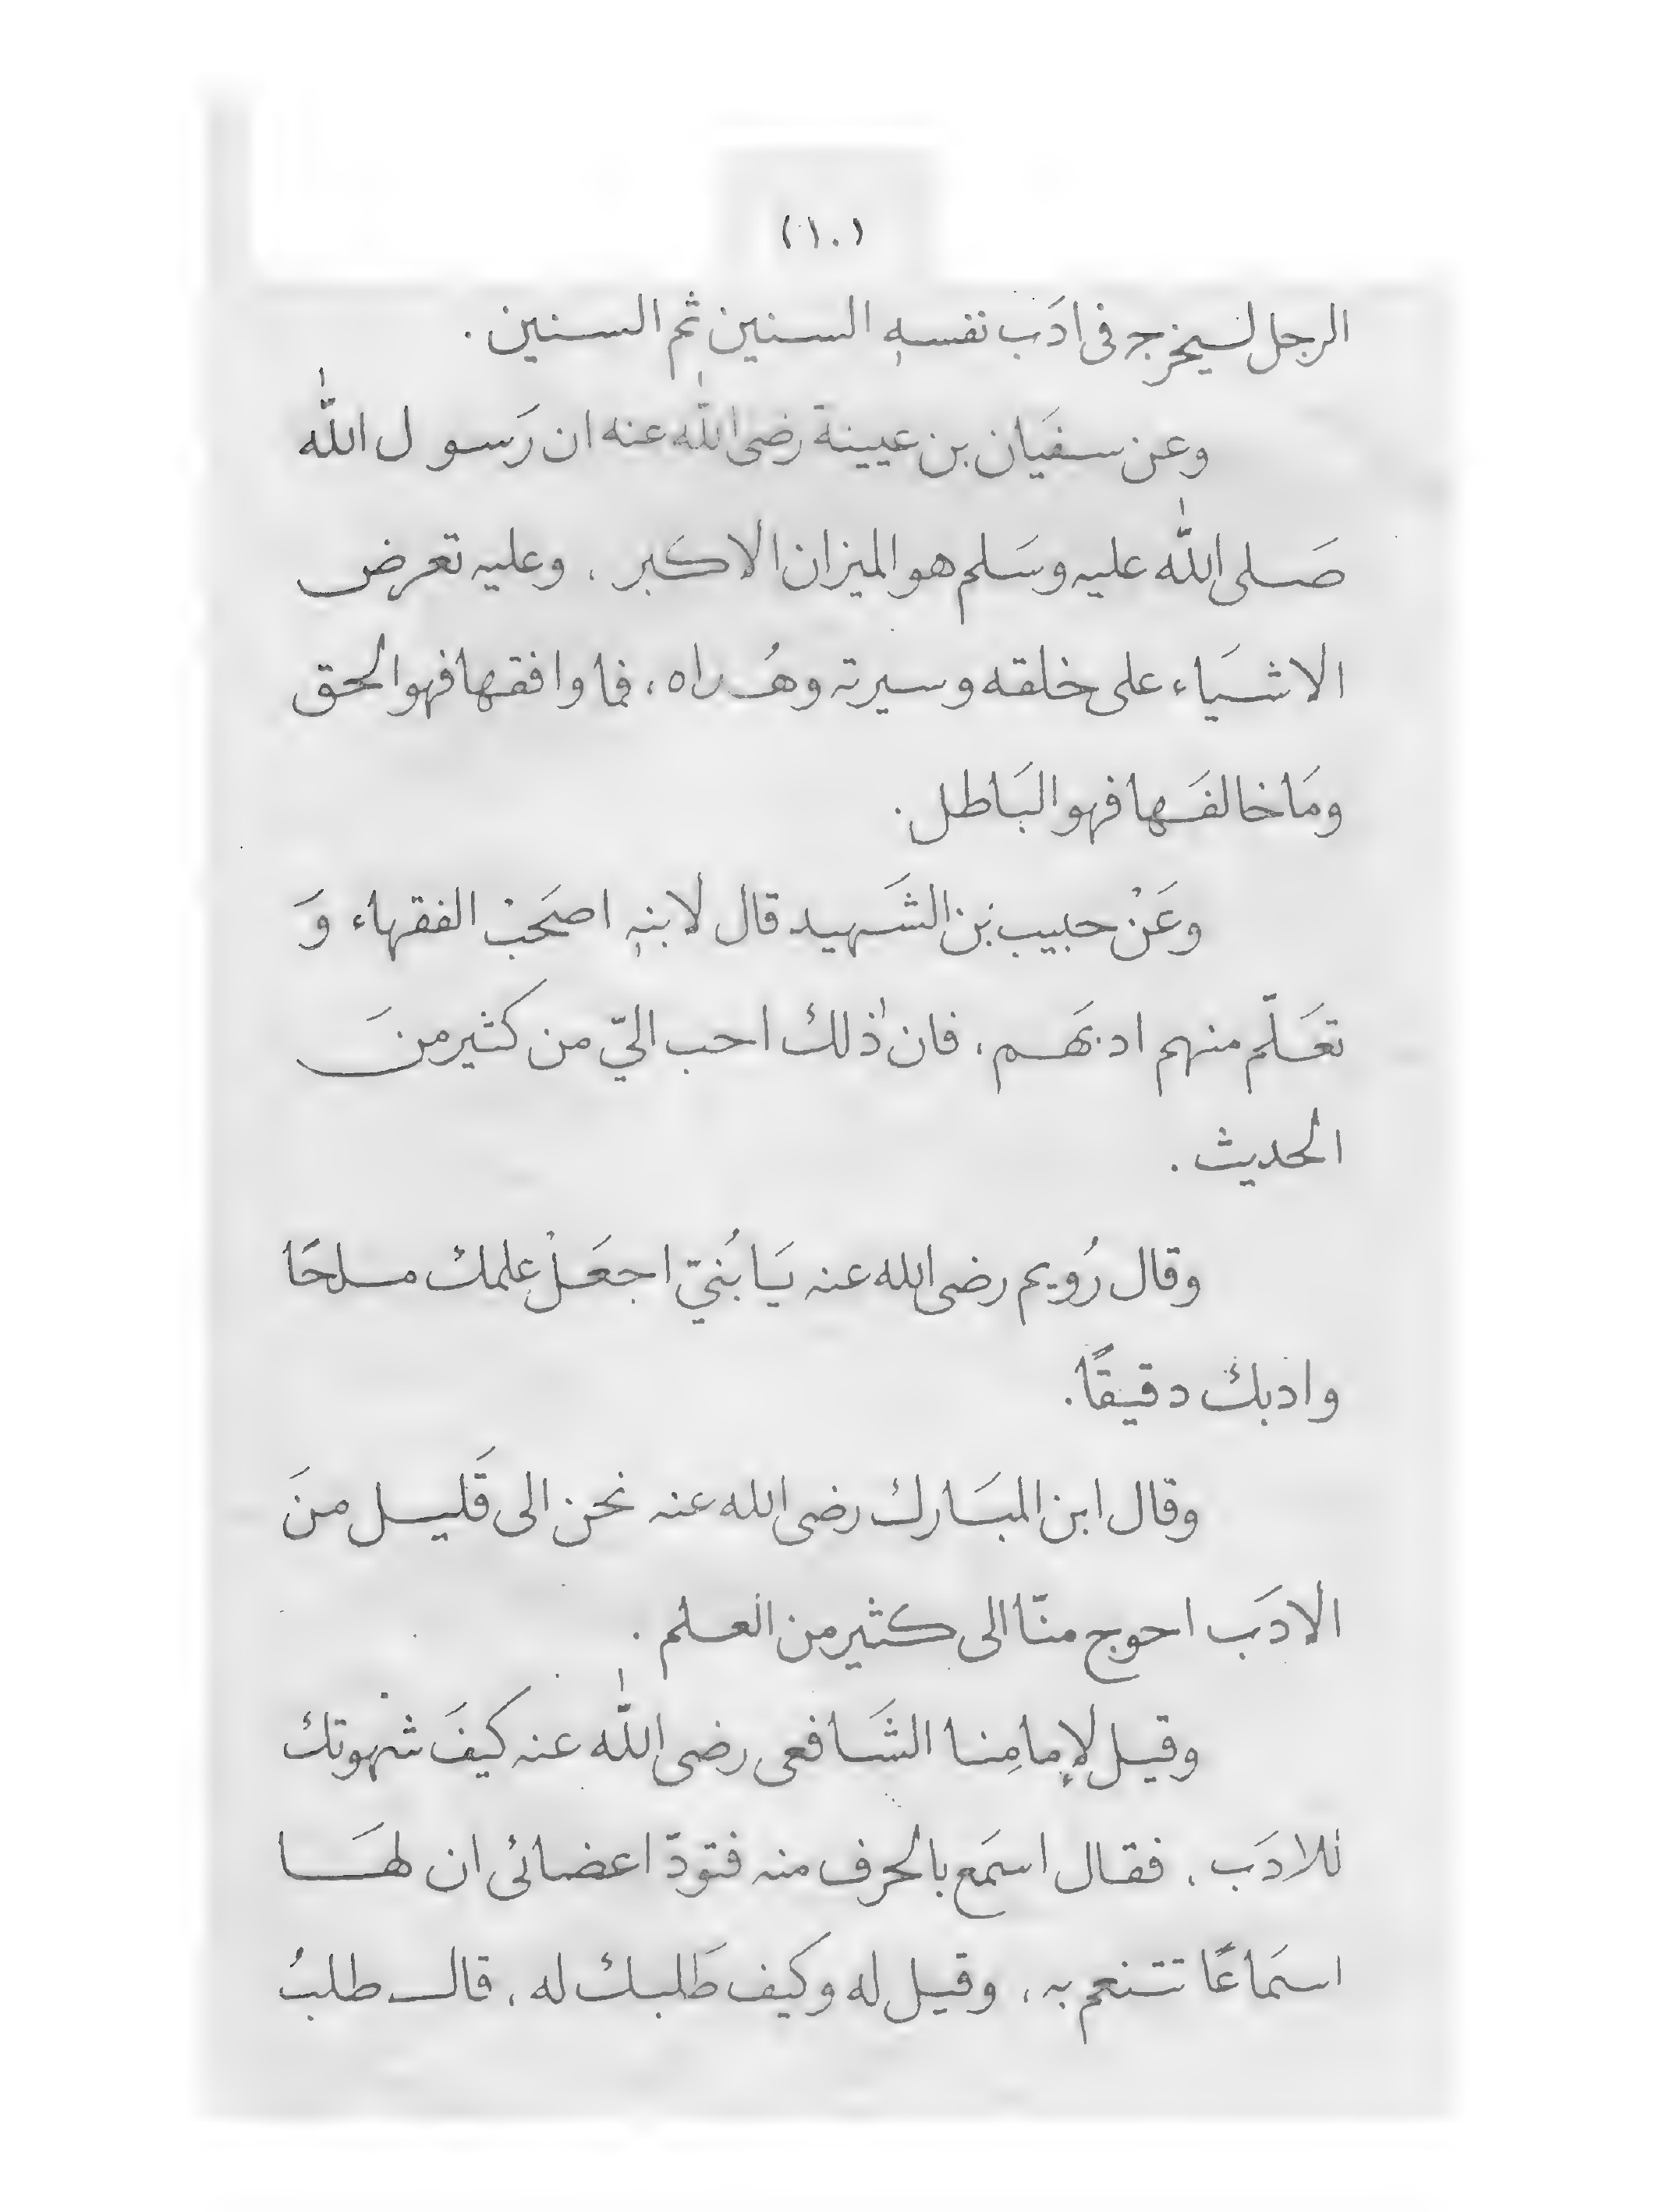 (١٠)
الرجل ليخرج فى ادَب نفسهٖ السنين ثم السنين .
وعن سفيَان بن عيينة رضى اللّٰه عنه ان رَسول اللّٰه
صَلى اللّٰه عليه وسَلم هو الميزان الاكبر ، وعليه تعرض
الاشيَاء على خلقه وسيرته وهُداه ، فما وافقها فهو الحق
ومَا خالفَها فهو البَاطل .
وعَنْ حبيب بن الشَهيد قال لابنهٖ اصحَبْ الفقهاء وَ
تعَلّم منهم ادبهَم ، فان ذٰلك احب اليّ من كثير منَ
الحديث .
وقال رُويم رضى الله عنه يَا بُنيّ اجعَلْ عِلمك ملحًا
وادبك دقيقًا .
وقال ابن المبَارك رضى الله عنه نحن الى قَليل منَ
الادَب احوج منّا الى كثير من العلم .
وقيل لإمامِنا الشَافعى رضى اللّٰه عنه كيفَ شهوتك
للادَب ، فقال اسمَع بالحرف منه فتودّ اعضائى ان لهَا
اسمَاعًا تتنعم به ، وقيل له وكيف طَلبك له ، قال طلبُ